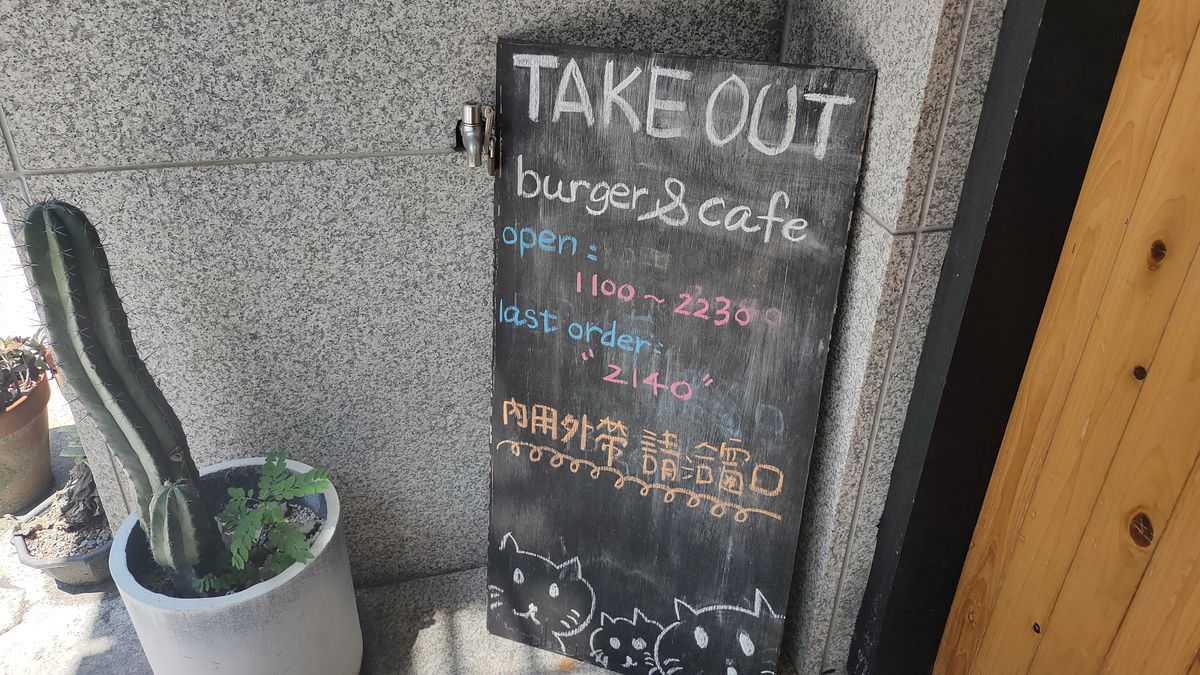 TAKE OUT
burger & cafe
open:
1100~2230
last order:
"2140"
內用外帶 請洽窗口